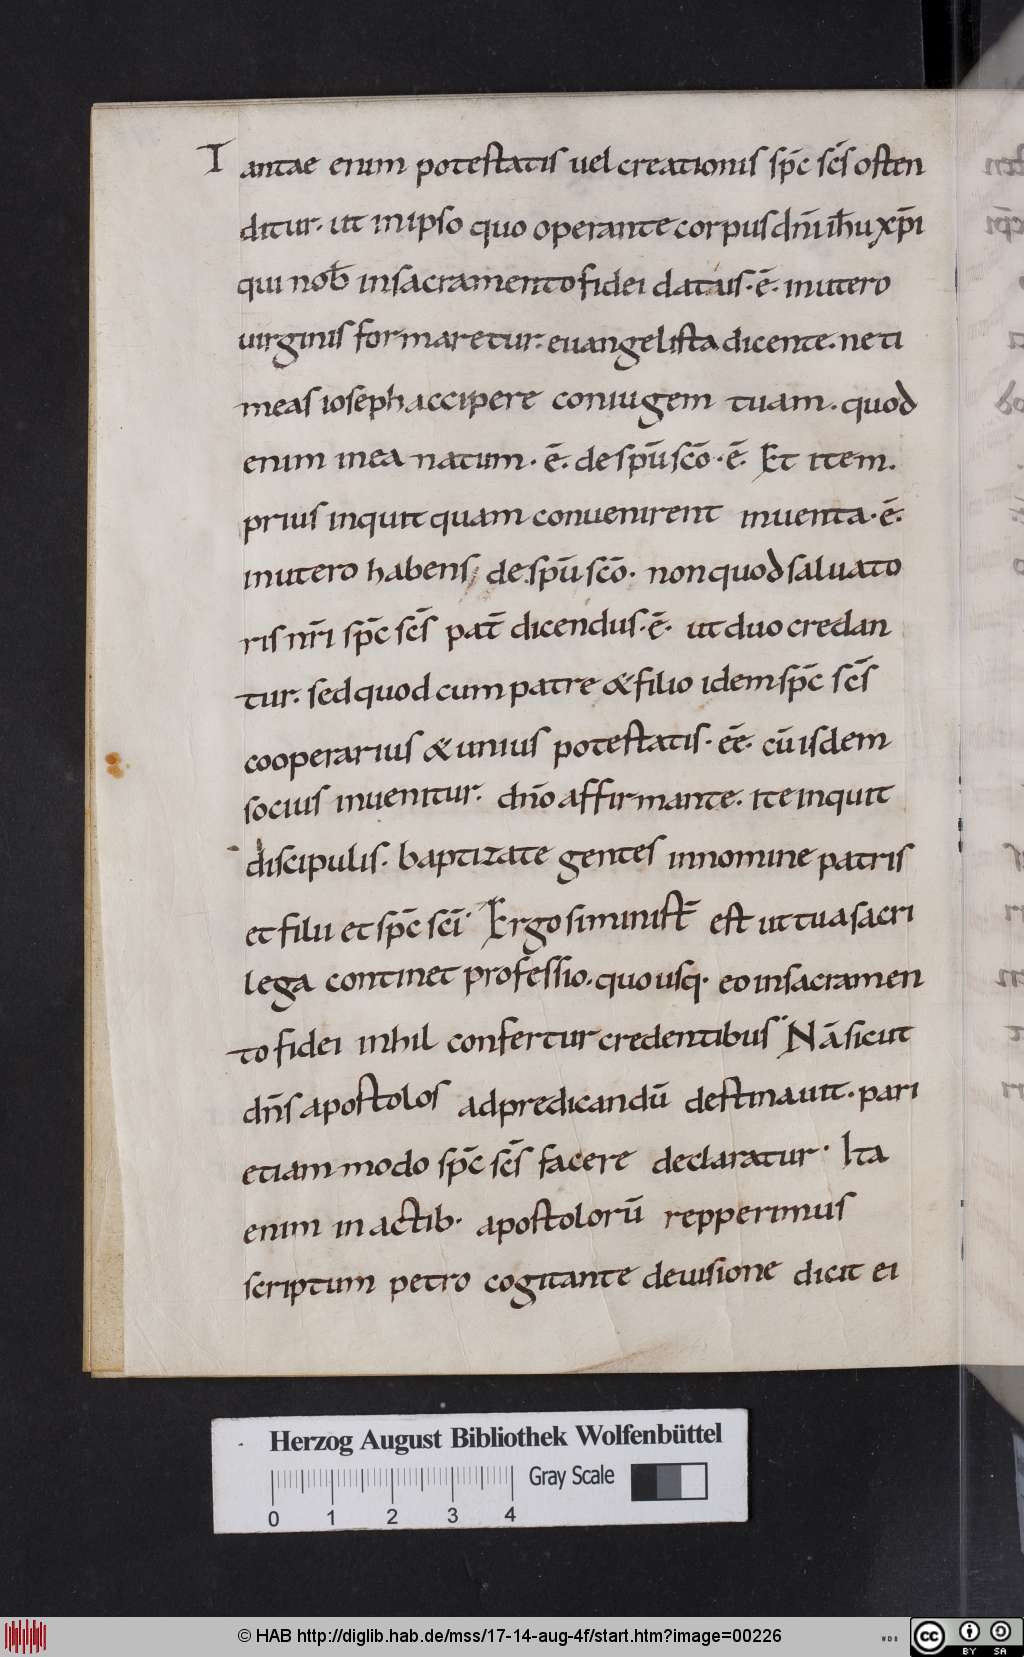 Tantae enim potestatis uel creationis sp̄c sc̄s osten
ditur· ut in ipso quo operante corpus dn̄i ih̄u xp̄i
qui nob̄ in sacramento fidei datus· ē· in utero
uirginis formaretur· euangelista dicente· ne ti
meas ioseph accipere coniugem tuam· quod
enim in ea natum· ē· de sp̄u sc̄o· ē· Et item·
prius inquit quam conuenirent inuenta· ē·
in utero habens de sp̄u sc̄o· non quod saluato
ris nr̄i sp̄c sc̄s pat̄ dicendus· ē· ut duo credan
tur· sed quod cum patre & filio idem sp̄c sc̄s
cooperarius & unius potestatis· ēē· cū isdem
socius inuenitur· dn̄o affirmante· ite inquit
discipulis· baptizate gentes in nomine patris
et filii et sp̄c sc̄i· Ergo si minist̄ est ut tua sacri
lega continet professio· quousq· eo in sacramen
to fidei nihil confertur credentibus· Nā sicut
dn̄s apostolos ad predicandū destinauit· pari
etiam modo sp̄c sc̄s facere declaratur· Ita
enim in actib· apostolorū repperimus
scriptum petro cogitante de uisione dicit ei
Herzog August Bibliothek Wolfenbüttel
Gray Scale
0 1 2 3 4
© HAB http://diglib.hab.de/mss/17-14-aug-4f/start.htm?image=00226
WDB
cc BY SA